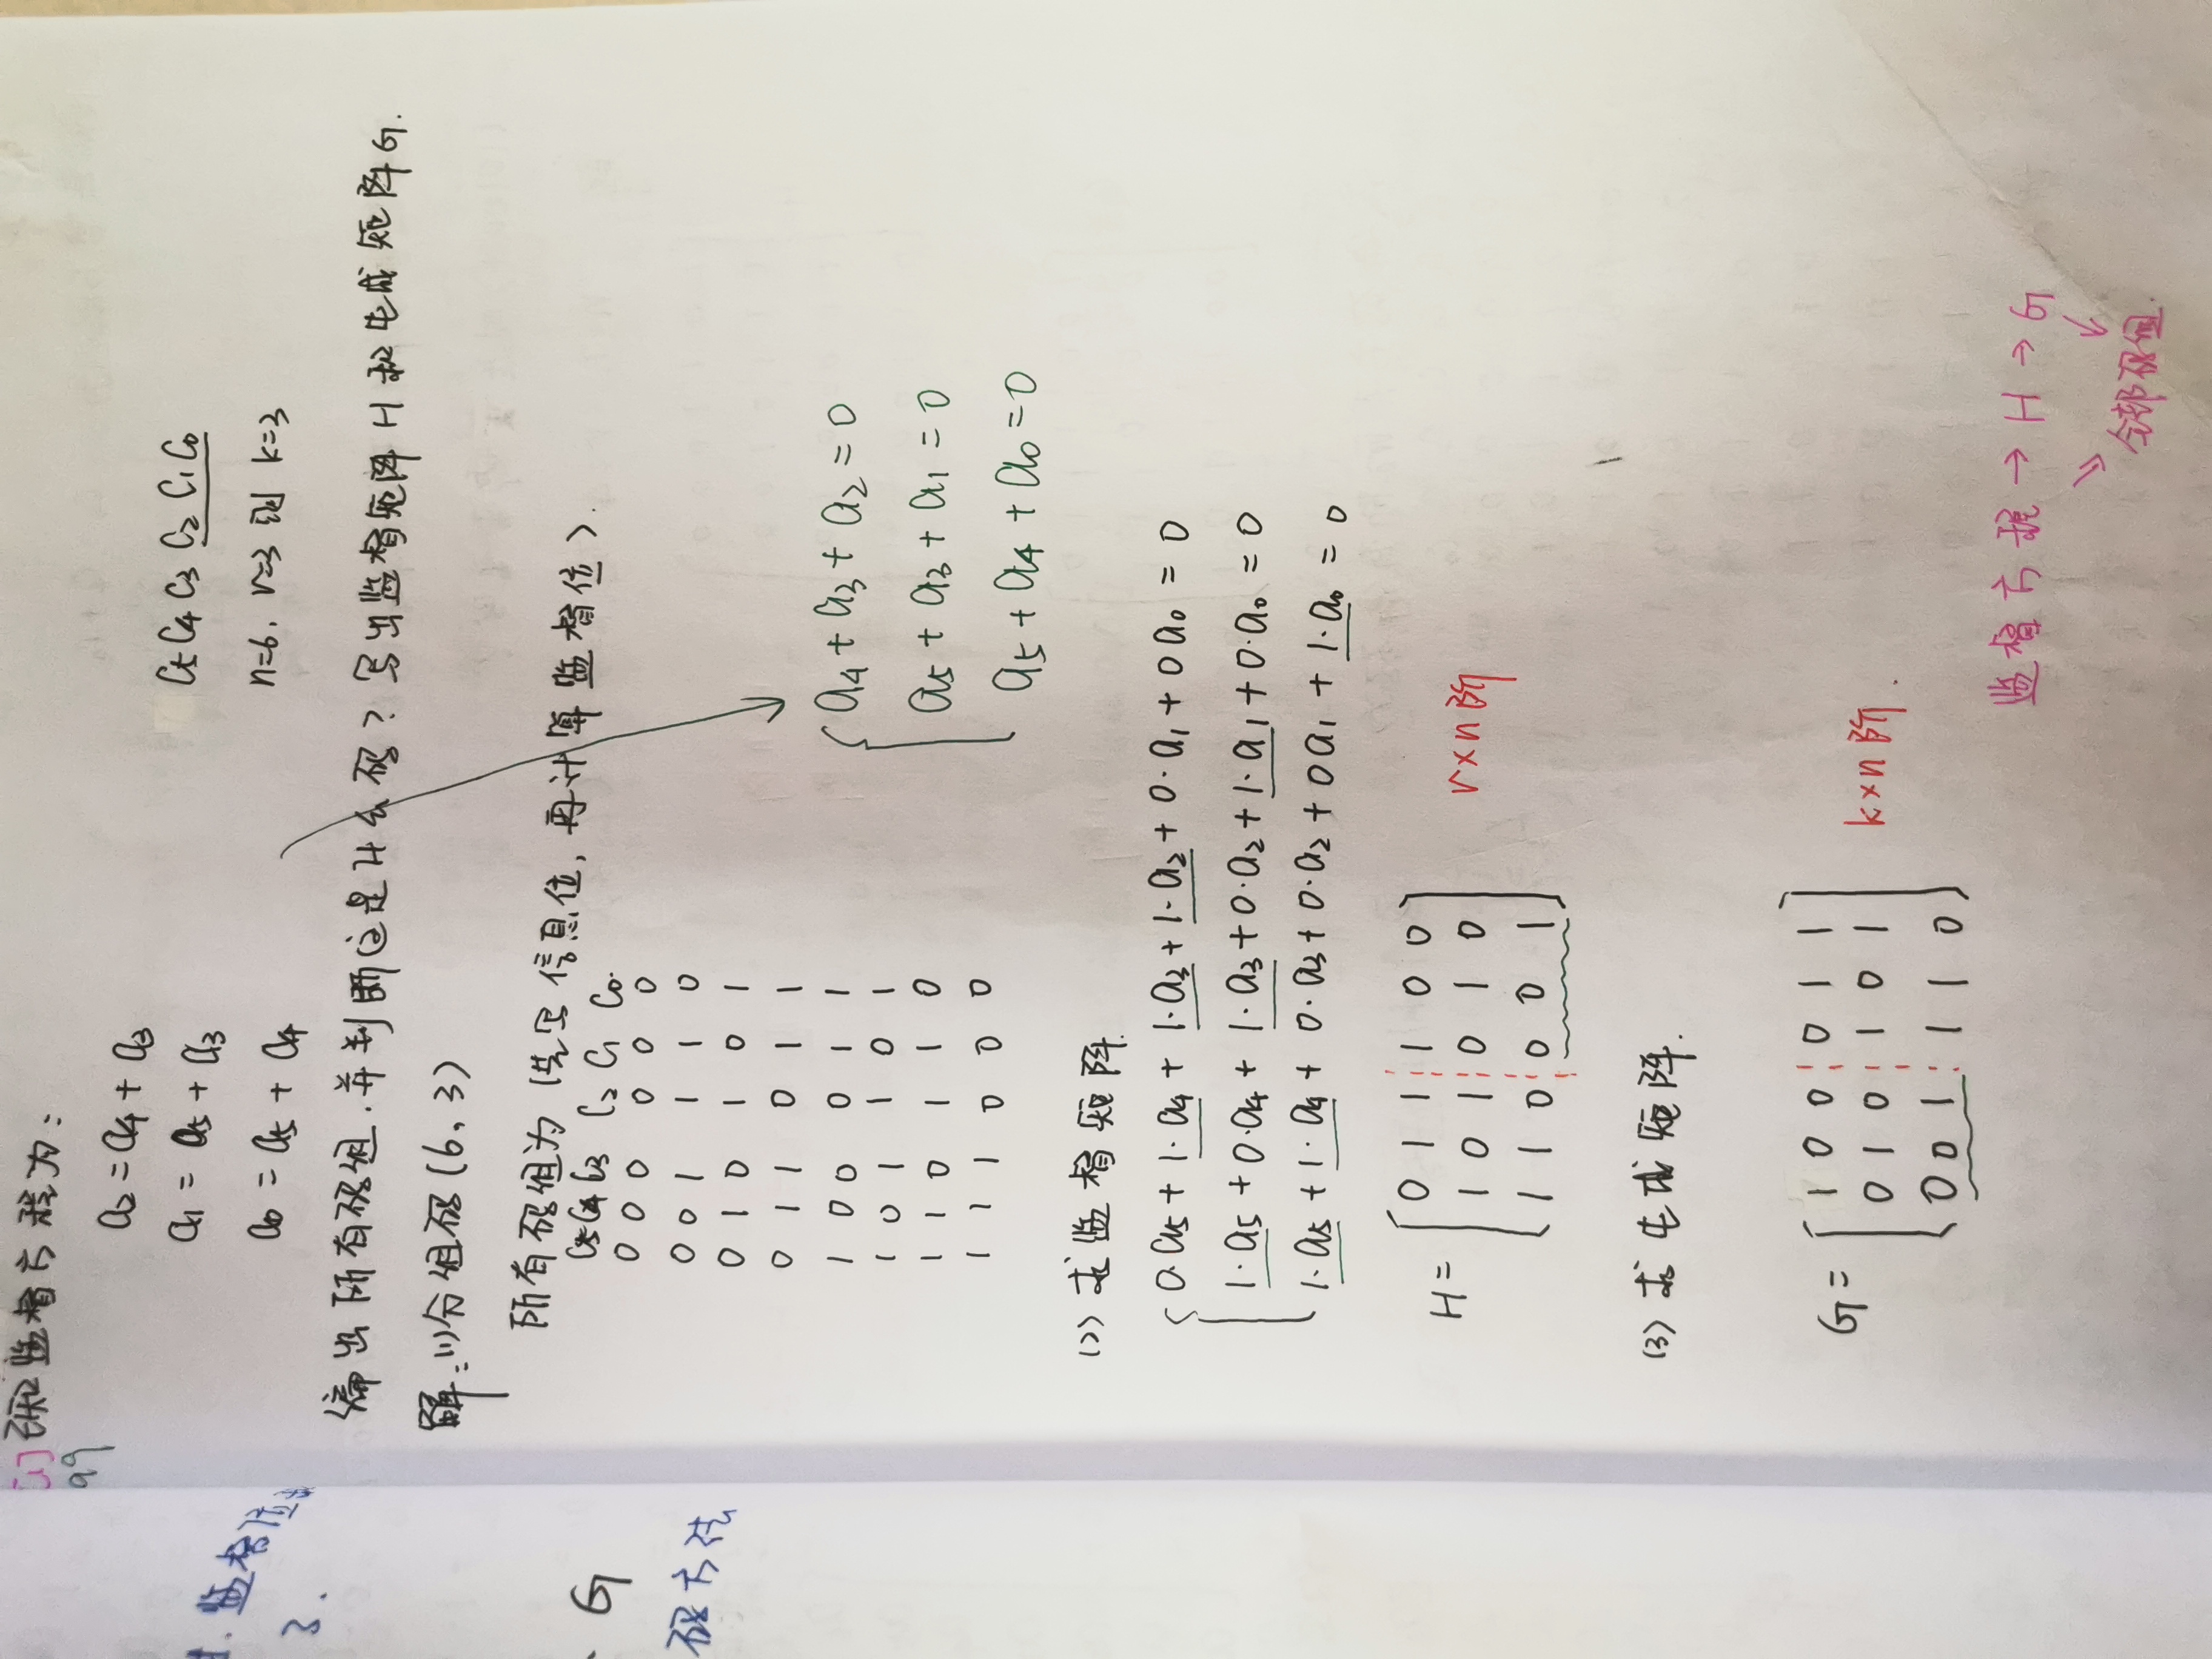 [1] 已知监督方程为：
a₂ = a₄ + a₃
a₁ = a₅ + a₃
a₀ = a₅ + a₄
C₅ C₄ C₃ C₂ C₁ C₀
n=6, r=3 则 k=3
编出所有码组.并判断这是什么码？写出监督矩阵 H 和生成矩阵 G.
解：(1)分组码(6,3)
所有码组为（先写信息位，再计算监督位）.
C₅ C₄ C₃ C₂ C₁ C₀
0 0 0 0 0 0
0 0 1 1 1 0
0 1 0 1 0 1
0 1 1 0 1 1
1 0 0 0 1 1
1 0 1 1 0 1
1 1 0 1 1 0
1 1 1 0 0 0
a₄ + a₃ + a₂ = 0
a₅ + a₃ + a₁ = 0
a₅ + a₄ + a₀ = 0
(2) 求监督矩阵.
0·a₅ + 1·a₄ + 1·a₃ + 1·a₂ + 0·a₁ + 0a₀ = 0
1·a₅ + 0·a₄ + 1·a₃ + 0·a₂ + 1·a₁ + 0·a₀ = 0
1·a₅ + 1·a₄ + 0·a₃ + 0·a₂ + 0a₁ + 1·a₀ = 0
H =
0 1 1 1 0 0
1 0 1 0 1 0
1 1 0 0 0 1
r×n阶
(3) 求生成矩阵.
G =
1 0 0 0 1 1
0 1 0 1 0 1
0 0 1 1 1 0
k×n阶.
监督方程 → H → G
⇓ 全部码组.
监督位
3.
G
码方法